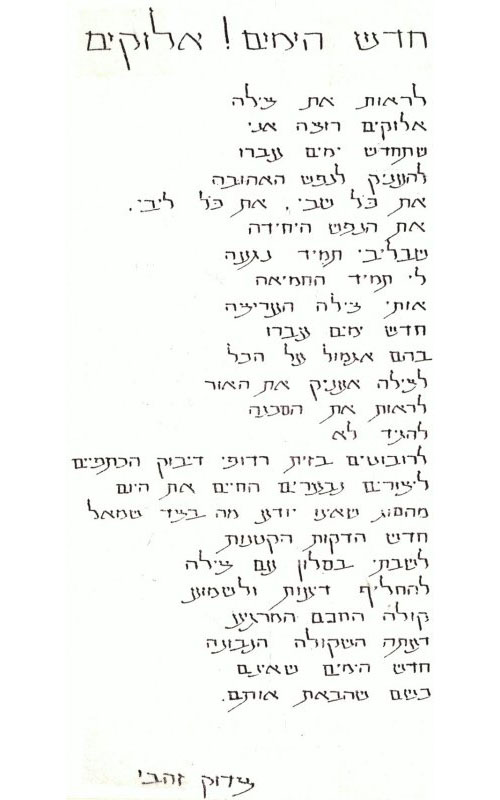 חדש הימים! אלוקים
לראות את צילה
אלוקים רוצה אני
שתחדש ימים עברו
להעניק לנפש האהובה
את כל שבי, את כל ליבי.
את הנפש היחידה
שבליבי תמיד נגעה
לי תמיד החמיאה
אותי צילה העריצה
חדש ימים עברו
בהם אגמול על הכל
לצילה אעניק את האור
לראות את הסכנה
להגיד לא
לרובוטים בזית רדופי דיבוק הכתפיים
ליצורים נבערים החיים את היום
מהסוג שאינו יודע מה בציד שמאל
חדש הדקות הקטנות
לשבתי בסלון עם צילה
להחליף דיעות ולשמוע
קולה החכם המרגיע
דעתה השקולה הנבונה
חדש הימים שאינם
כשם שהבאת אותם.
צדוק זהבי